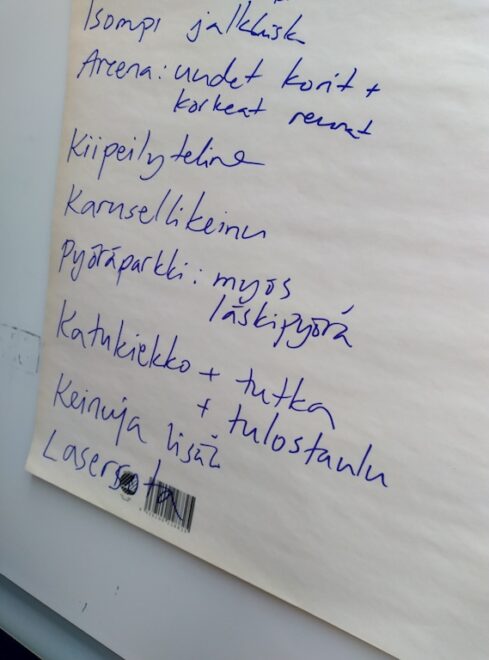 Isompi jalkkisk
Areena: uudet korit +
korkeat reunat
Kiipeilyteline
Karusellikeinu
Pyöräparkki: myös
läskipyörä
Katukiekko + tutka
+ tulostaulu
Keinuja lisää
Lasersota